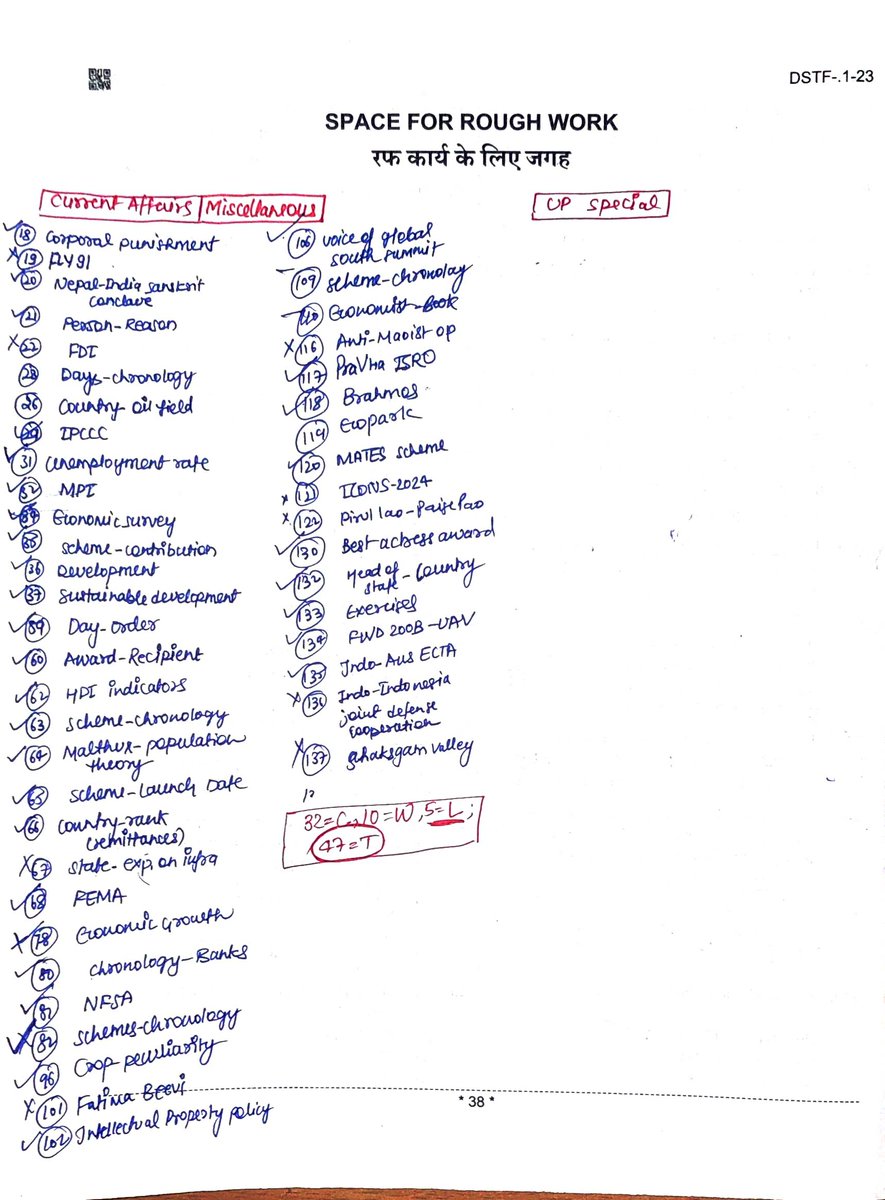 DSTF-.1-23
SPACE FOR ROUGH WORK
रफ कार्य के लिए जगह
Current Affairs | Miscellaneous
✓ 18 Corporal punishment
✗ 19
✓ 20 Nepal-India Sanskrit
conclave
✓ 21 Person-Reason
✗ 22 FDI
23 Days-chronology
26 Country-oil field
29 IPCCC
✓ 31 Unemployment rate
✓ 32 MPI
✓ 34 Economic survey
✓ 35 scheme-contribution
✓ 36 Development
✓ 37 Sustainable development
✓ 39 Day-order
✓ 60 Award-Recipient
✓ 62 HDI indicators
✓ 63 scheme-chronology
✓ 64 Malthus-population
theory
✓ 65 scheme-Launch Date
✓ 66 Country-rank
(remittances)
✗ 67 State-exp. on infra
✓ 68 FEMA
✗ 78 Economic Growth
✓ 80 Chronology-Banks
✓ 81 NFSA
82 Schemes-chronology
✓ 96 Crop peculiarity
✗ 101 Fatima Beevi
✓ 102 Intellectual Property policy
✓ 106 Voice of global
south summit
– 109 scheme-chronolay
– 110 Economist-Book
✗ 116 Anti-Maoist op
✓ 117 PraVHa ISRO
✓ 118 Brahmos
119 Ecopark
✓ 120 MATES scheme
✗ 121 ICONS-2024
✗ 122 Pirul lao-Paise Pao
✓ 130 Best actress award
✓ 132 Head of
state-Country
✓ 133 Exercises
✓ 134 FWD 200B-UAV
✓ 135 Indo-Aus ECTA
✗ 136 Indo-Indonesia
joint defense
cooperation
✗ 137 Shaksgam valley
32=C, 10=W, 5=L;
47=T
UP special
* 38 *